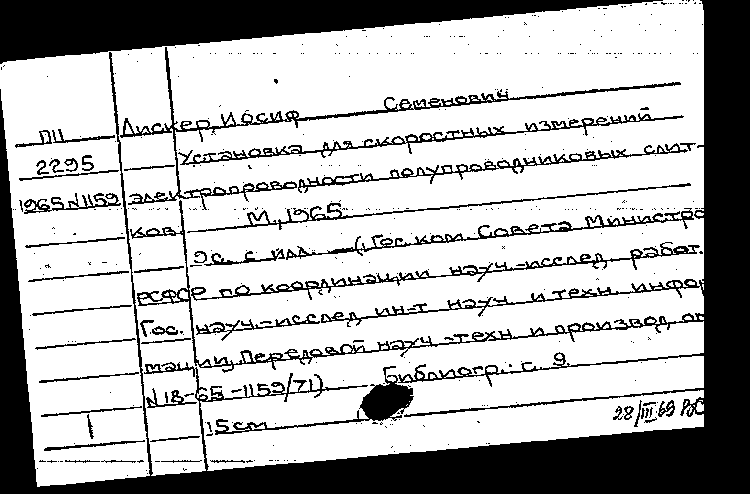 П11 Лискер, Иосиф Семенович
2295 Установка для скоростных измерений
1965 N1159 электропроводности полупроводниковых слит-
ков. М., 1965.
9с. с илл. — (Гос. ком. Совета Министро
РСФСР по координации науч.-исслед. работ.
Гос. науч.-исслед. ин-т науч. и техн. инфор
мации. Передовой науч.-техн. и производ. оп
N 18-65-1159/71). Библиогр.: с. 9.
1 15 см
28/III 69 РЖС